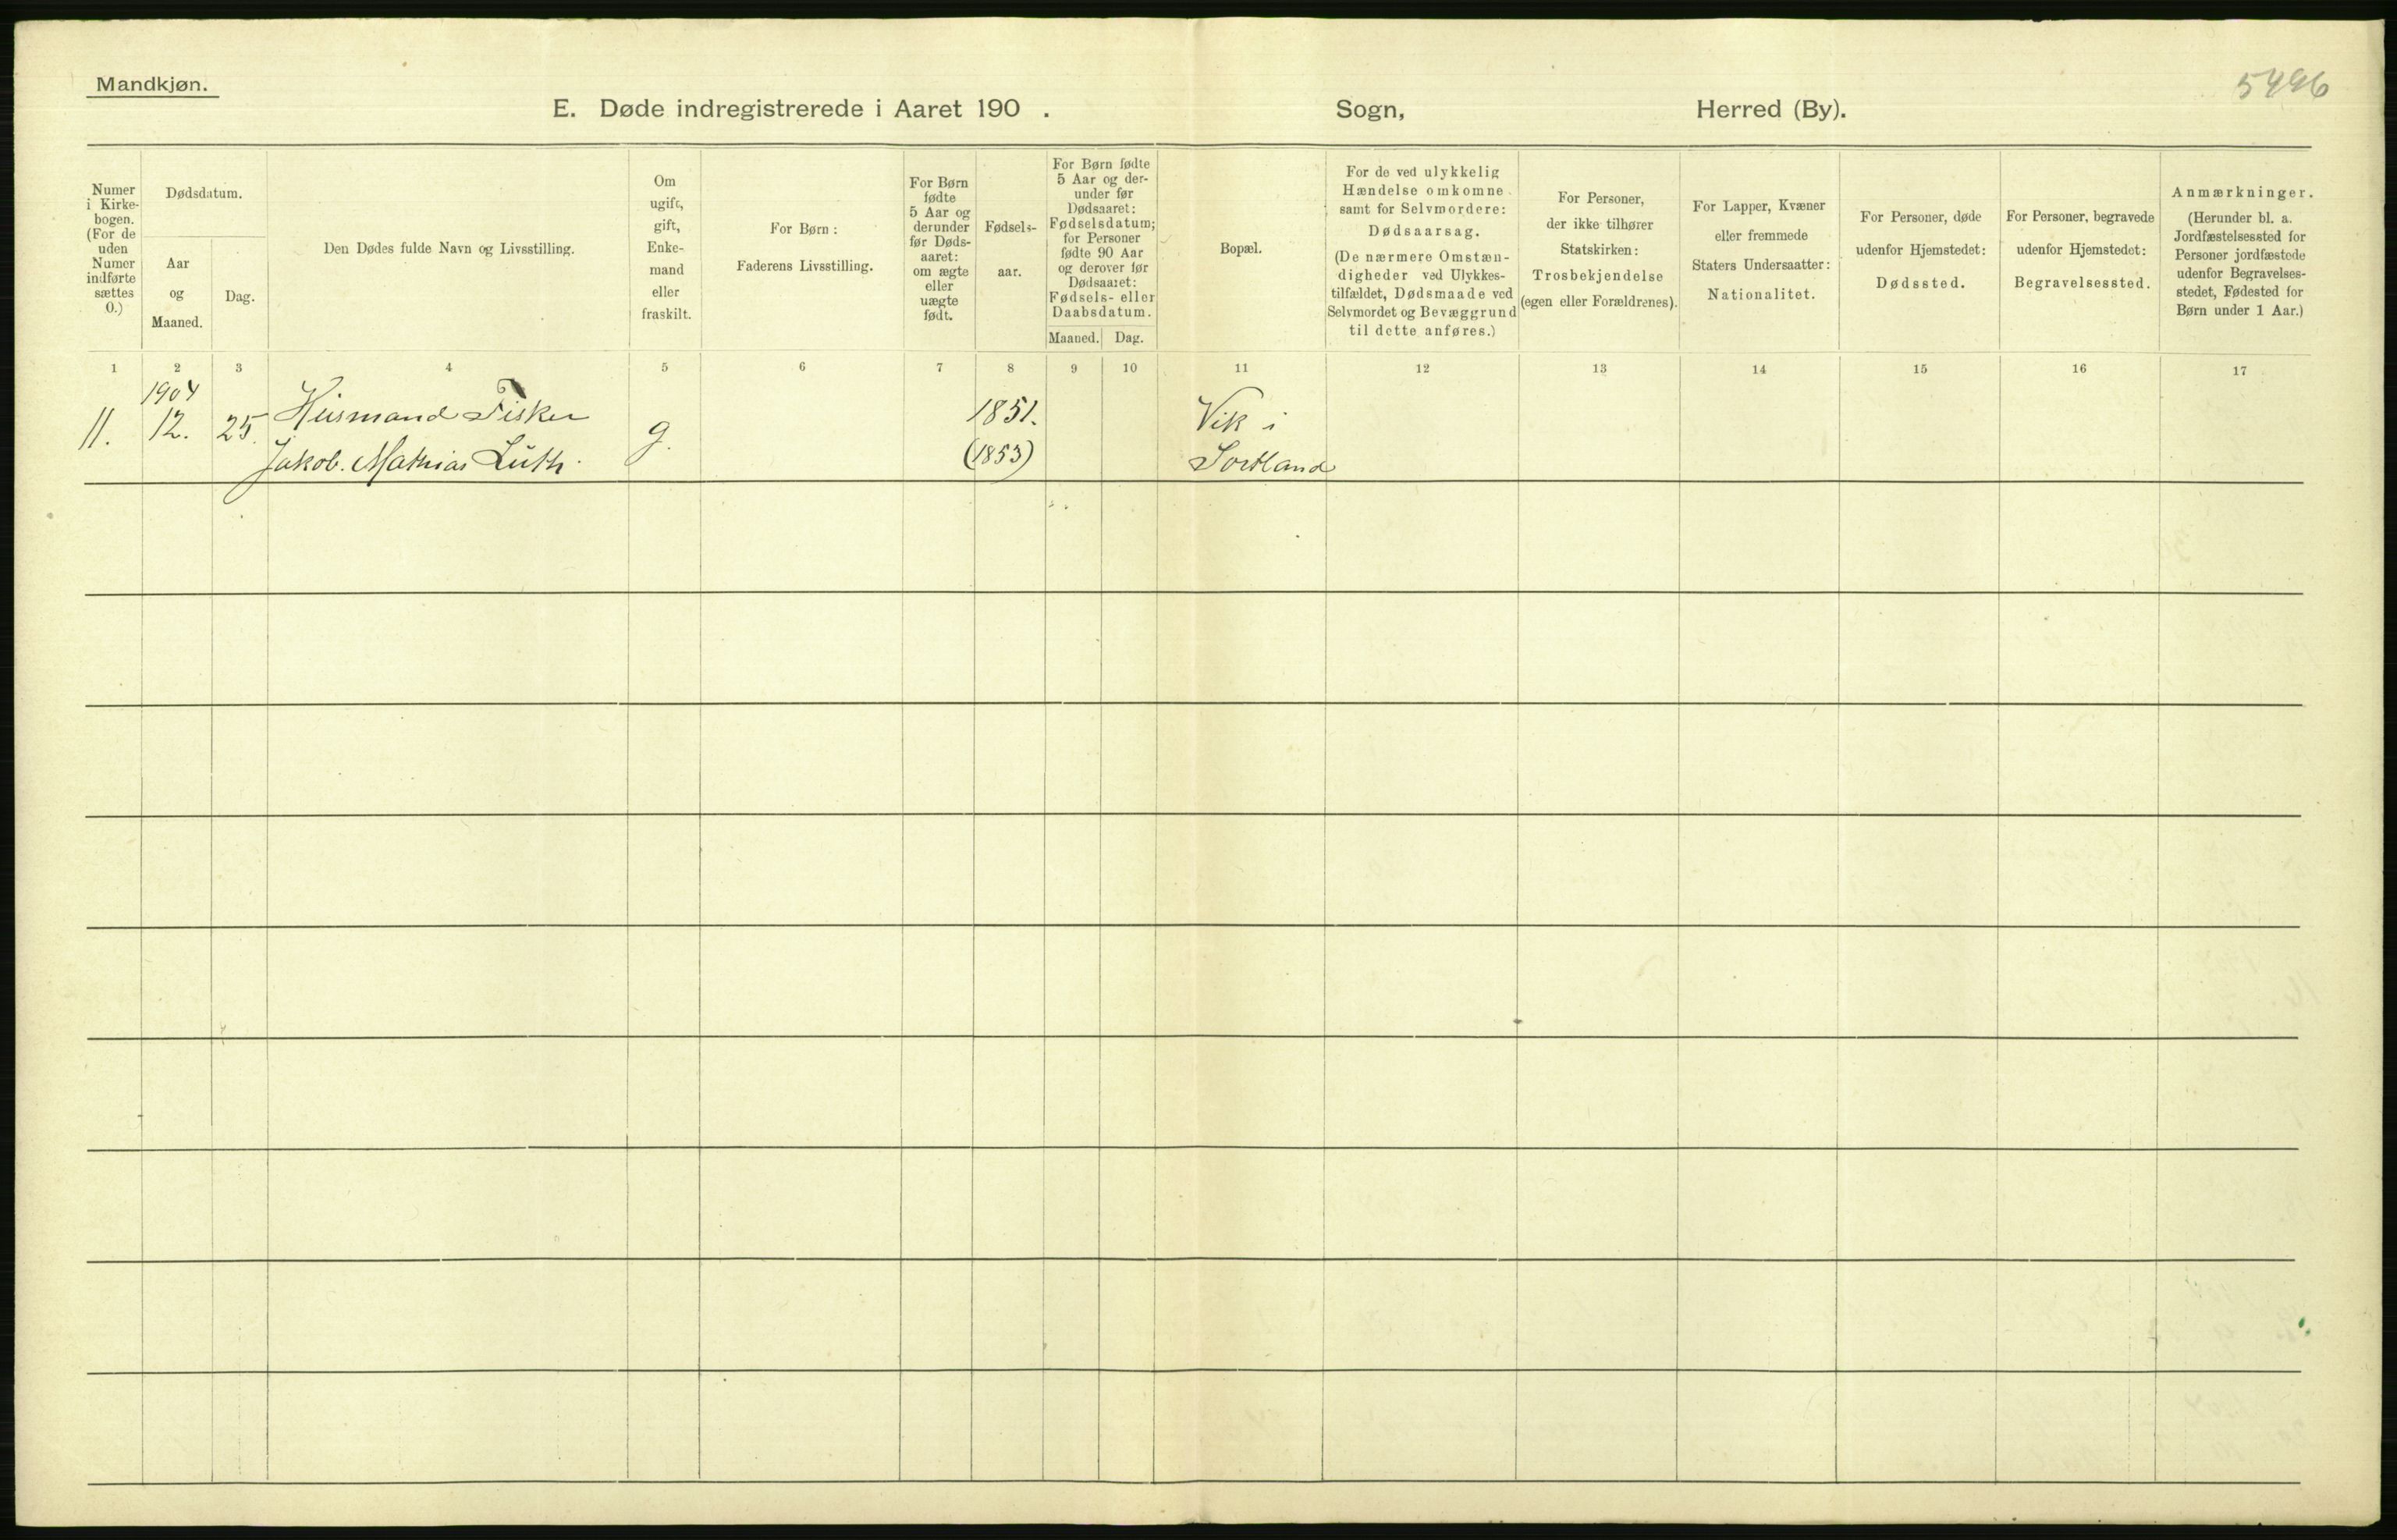 Mandkjøn.
5496
E. Døde indregistrerede i Aaret 190 . Sogn, Herred (By).
Numer
i Kirke-
bogen.
(For de
uden
Numer
indførte
sættes
0.)
Dødsdatum.
Aar
og
Maaned.
Dag.
Den Dødes fulde Navn og Livsstilling.
Om
ugift,
gift,
Enke-
mand
eller
fraskilt.
For Børn :
Faderens Livsstilling.
For Børn
fødte
5 Aar og
derunder
før Døds-
aaret:
om ægte
eller
uægte
født.
Fødsels-
aar.
For Børn fødte
5 Aar og der-
under før
Dødsaaret:
Fødselsdatum;
for Personer
fødte 90 Aar
og derover før
Dødsaaret:
Fødsels- eller
Daabsdatum.
Maaned. Dag.
Bopæl.
For de ved ulykkelig
Hændelse omkomne
samt for Selvmordere:
Dødsaarsag.
(De nærmere Omstæn-
digheder ved Ulykkes-
tilfældet, Dødsmaade ved
Selvmordet og Bevæggrund
til dette anføres.)
For Personer,
der ikke tilhører
Statskirken:
Trosbekjendelse
(egen eller Forældrenes).
For Lapper, Kvæner
eller fremmede
Staters Undersaatter:
Nationalitet.
For Personer, døde
udenfor Hjemstedet:
Dødssted.
For Personer, begravede
udenfor Hjemstedet:
Begravelsessted.
Anmærkninger.
(Herunder bl. a.
Jordfæstelsessted for
Personer jordfæstede
udenfor Begravelses-
stedet, Fødested for
Børn under 1 Aar.)
1 2 3 4 5 6 7 8 9 10 11 12 13 14 15 16 17
1904
11. 12. 25. Husmand Fisker g. 1851. Vik i
Jakob. Mathias Lüth. (1853) Sortland